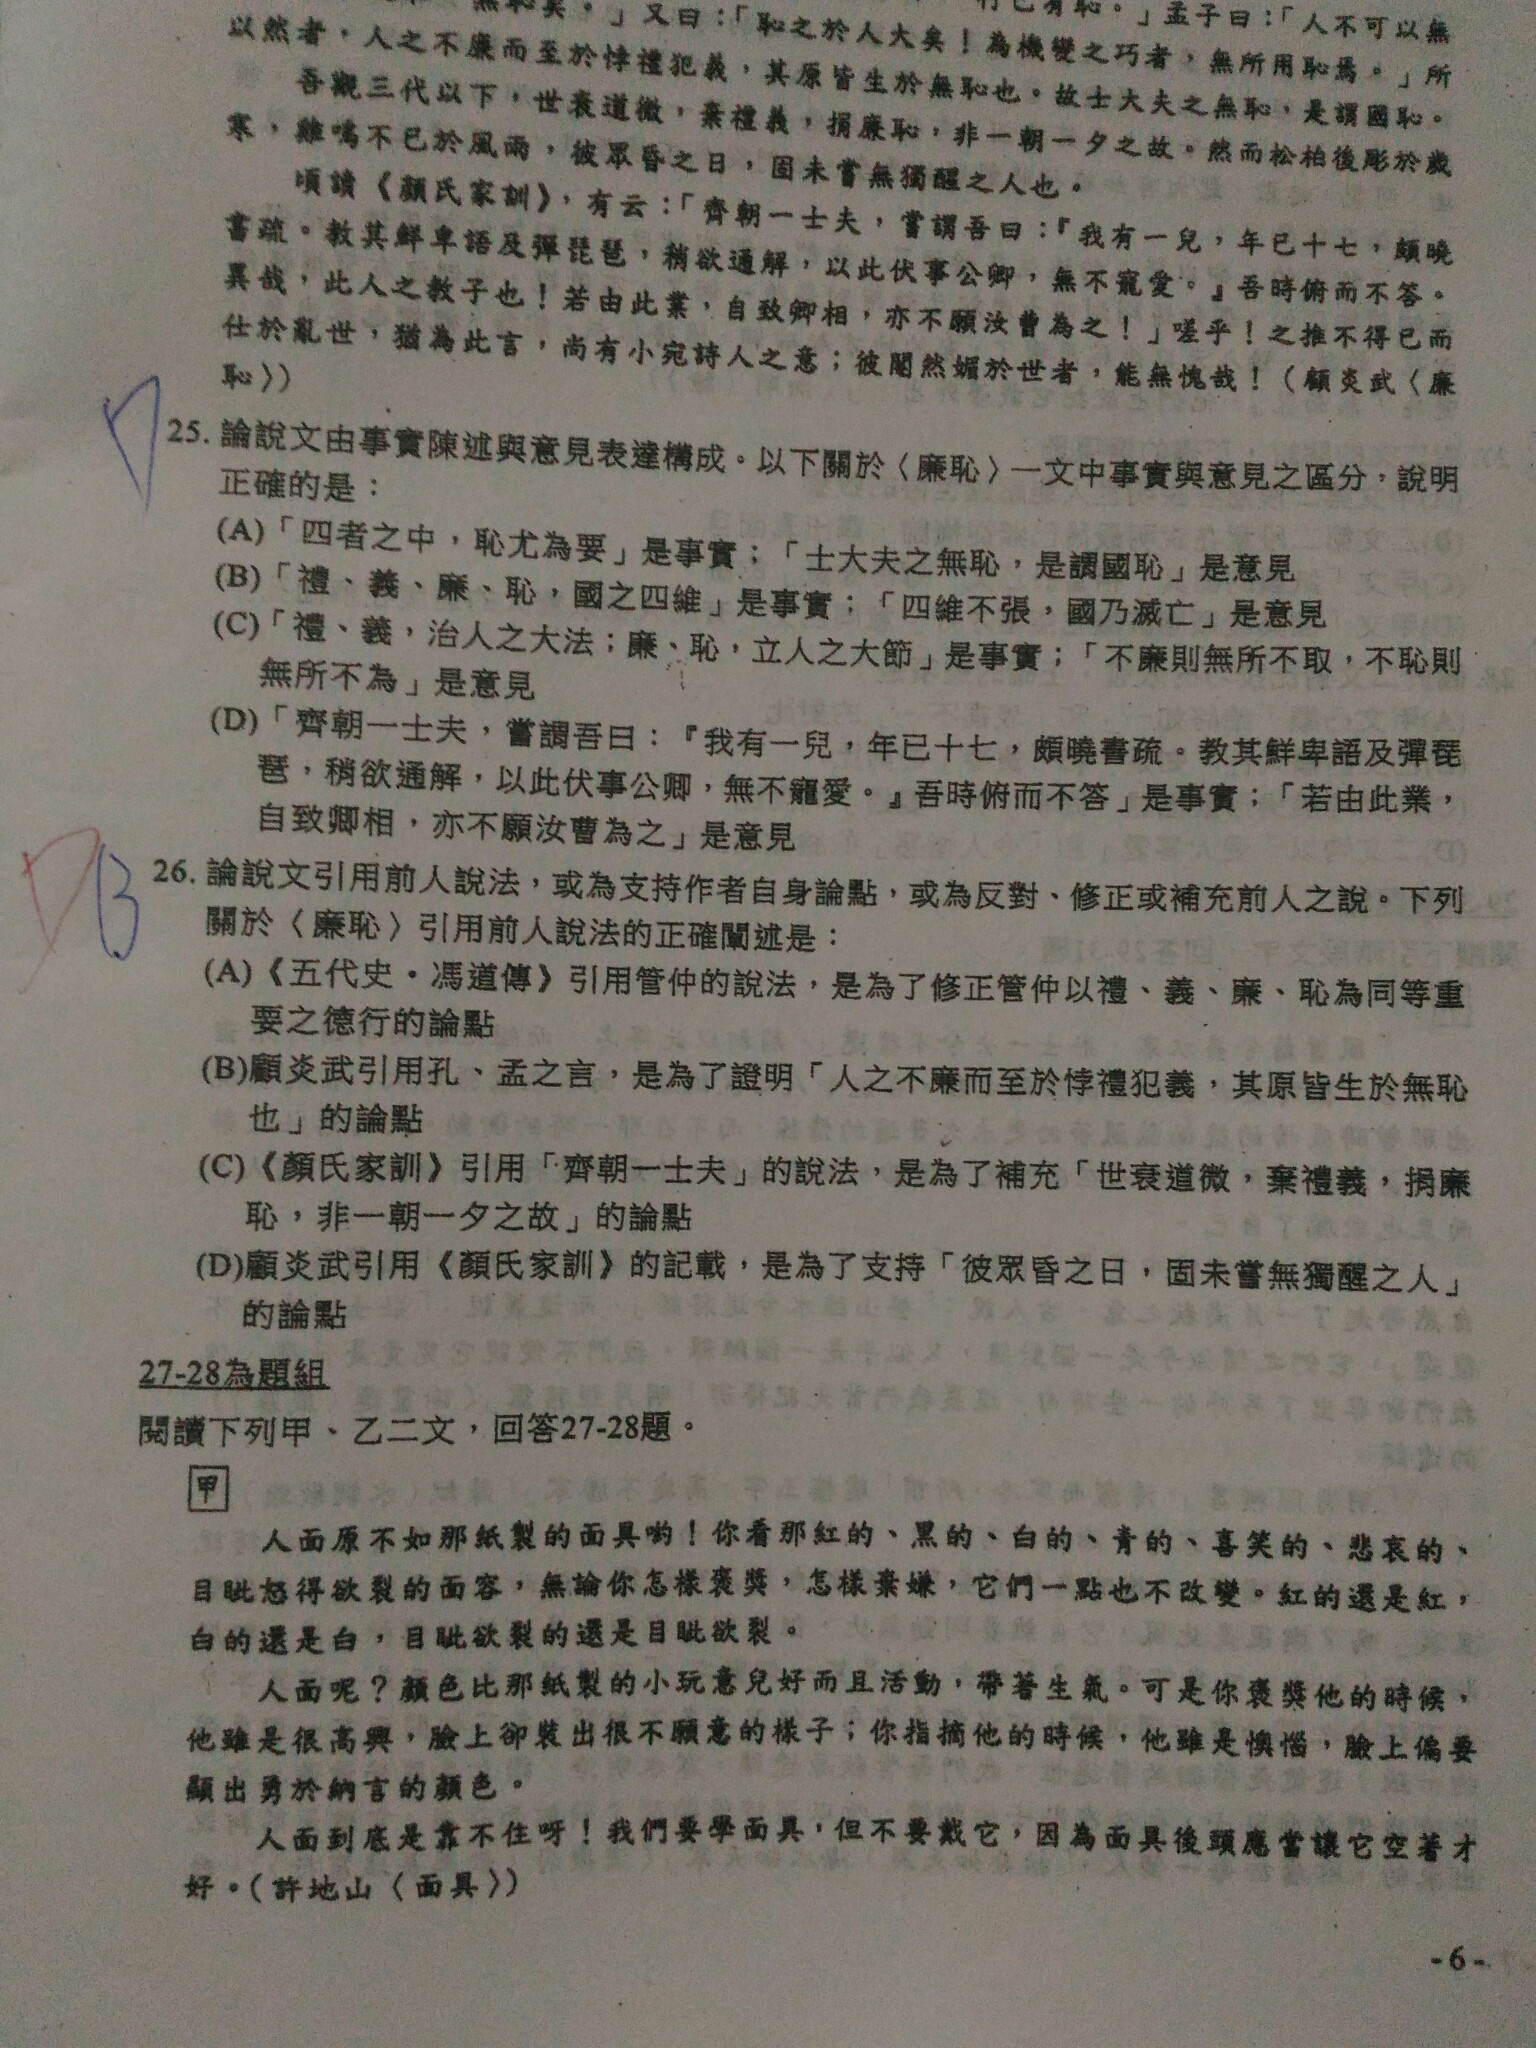 無恥矣。」又曰：「恥之於人大矣！為機變之巧者，無所用恥焉。」所
行己有恥。」孟子曰：「人不可以無
以然者，人之不廉而至於悖禮犯義，其原皆生於無恥也。故士大夫之無恥，是謂國恥。
吾觀三代以下，世衰道微，棄禮義，捐廉恥，非一朝一夕之故。然而松柏後彫於歲
寒，雞鳴不已於風雨，彼眾昏之日，固未嘗無獨醒之人也。
頃讀《顏氏家訓》，有云：「齊朝一士夫，嘗謂吾曰：『我有一兒，年已十七，頗曉
書疏。教其鮮卑語及彈琵琶，稍欲通解，以此伏事公卿，無不寵愛。』吾時俯而不答。
異哉，此人之教子也！若由此業，自致卿相，亦不願汝曹為之！」嗟乎！之推不得已而
仕於亂世，猶為此言，尚有小宛詩人之意；彼閹然媚於世者，能無愧哉！（顧炎武〈廉
恥〉）
25. 論說文由事實陳述與意見表達構成。以下關於〈廉恥〉一文中事實與意見之區分，說明
正確的是：
(A)「四者之中，恥尤為要」是事實；「士大夫之無恥，是謂國恥」是意見
(B)「禮、義、廉、恥，國之四維」是事實；「四維不張，國乃滅亡」是意見
(C)「禮、義，治人之大法；廉、恥，立人之大節」是事實；「不廉則無所不取，不恥則
無所不為」是意見
(D)「齊朝一士夫，嘗謂吾曰：『我有一兒，年已十七，頗曉書疏。教其鮮卑語及彈琵
琶，稍欲通解，以此伏事公卿，無不寵愛。』吾時俯而不答」是事實；「若由此業，
自致卿相，亦不願汝曹為之」是意見
B 26. 論說文引用前人說法，或為支持作者自身論點，或為反對、修正或補充前人之說。下列
關於〈廉恥〉引用前人說法的正確闡述是：
(A)《五代史•馮道傳》引用管仲的說法，是為了修正管仲以禮、義、廉、恥為同等重
要之德行的論點
(B)顧炎武引用孔、孟之言，是為了證明「人之不廉而至於悖禮犯義，其原皆生於無恥
也」的論點
(C)《顏氏家訓》引用「齊朝一士夫」的說法，是為了補充「世衰道微，棄禮義，捐廉
恥，非一朝一夕之故」的論點
(D)顧炎武引用《顏氏家訓》的記載，是為了支持「彼眾昏之日，固未嘗無獨醒之人」
的論點
27-28為題組
閱讀下列甲、乙二文，回答27-28題。
甲
人面原不如那紙製的面具喲！你看那紅的、黑的、白的、青的、喜笑的、悲哀的、
目眦怒得欲裂的面容，無論你怎樣褒獎，怎樣棄嫌，它們一點也不改變。紅的還是紅，
白的還是白，目眦欲裂的還是目眦欲裂。
人面呢？顏色比那紙製的小玩意兒好而且活動，帶著生氣。可是你褒獎他的時候，
他雖是很高興，臉上卻裝出很不願意的樣子；你指摘他的時候，他雖是懊惱，臉上偏要
顯出勇於納言的顏色。
人面到底是靠不住呀！我們要學面具，但不要戴它，因為面具後頭應當讓它空著才
好。（許地山〈面具〉）
- 6 -